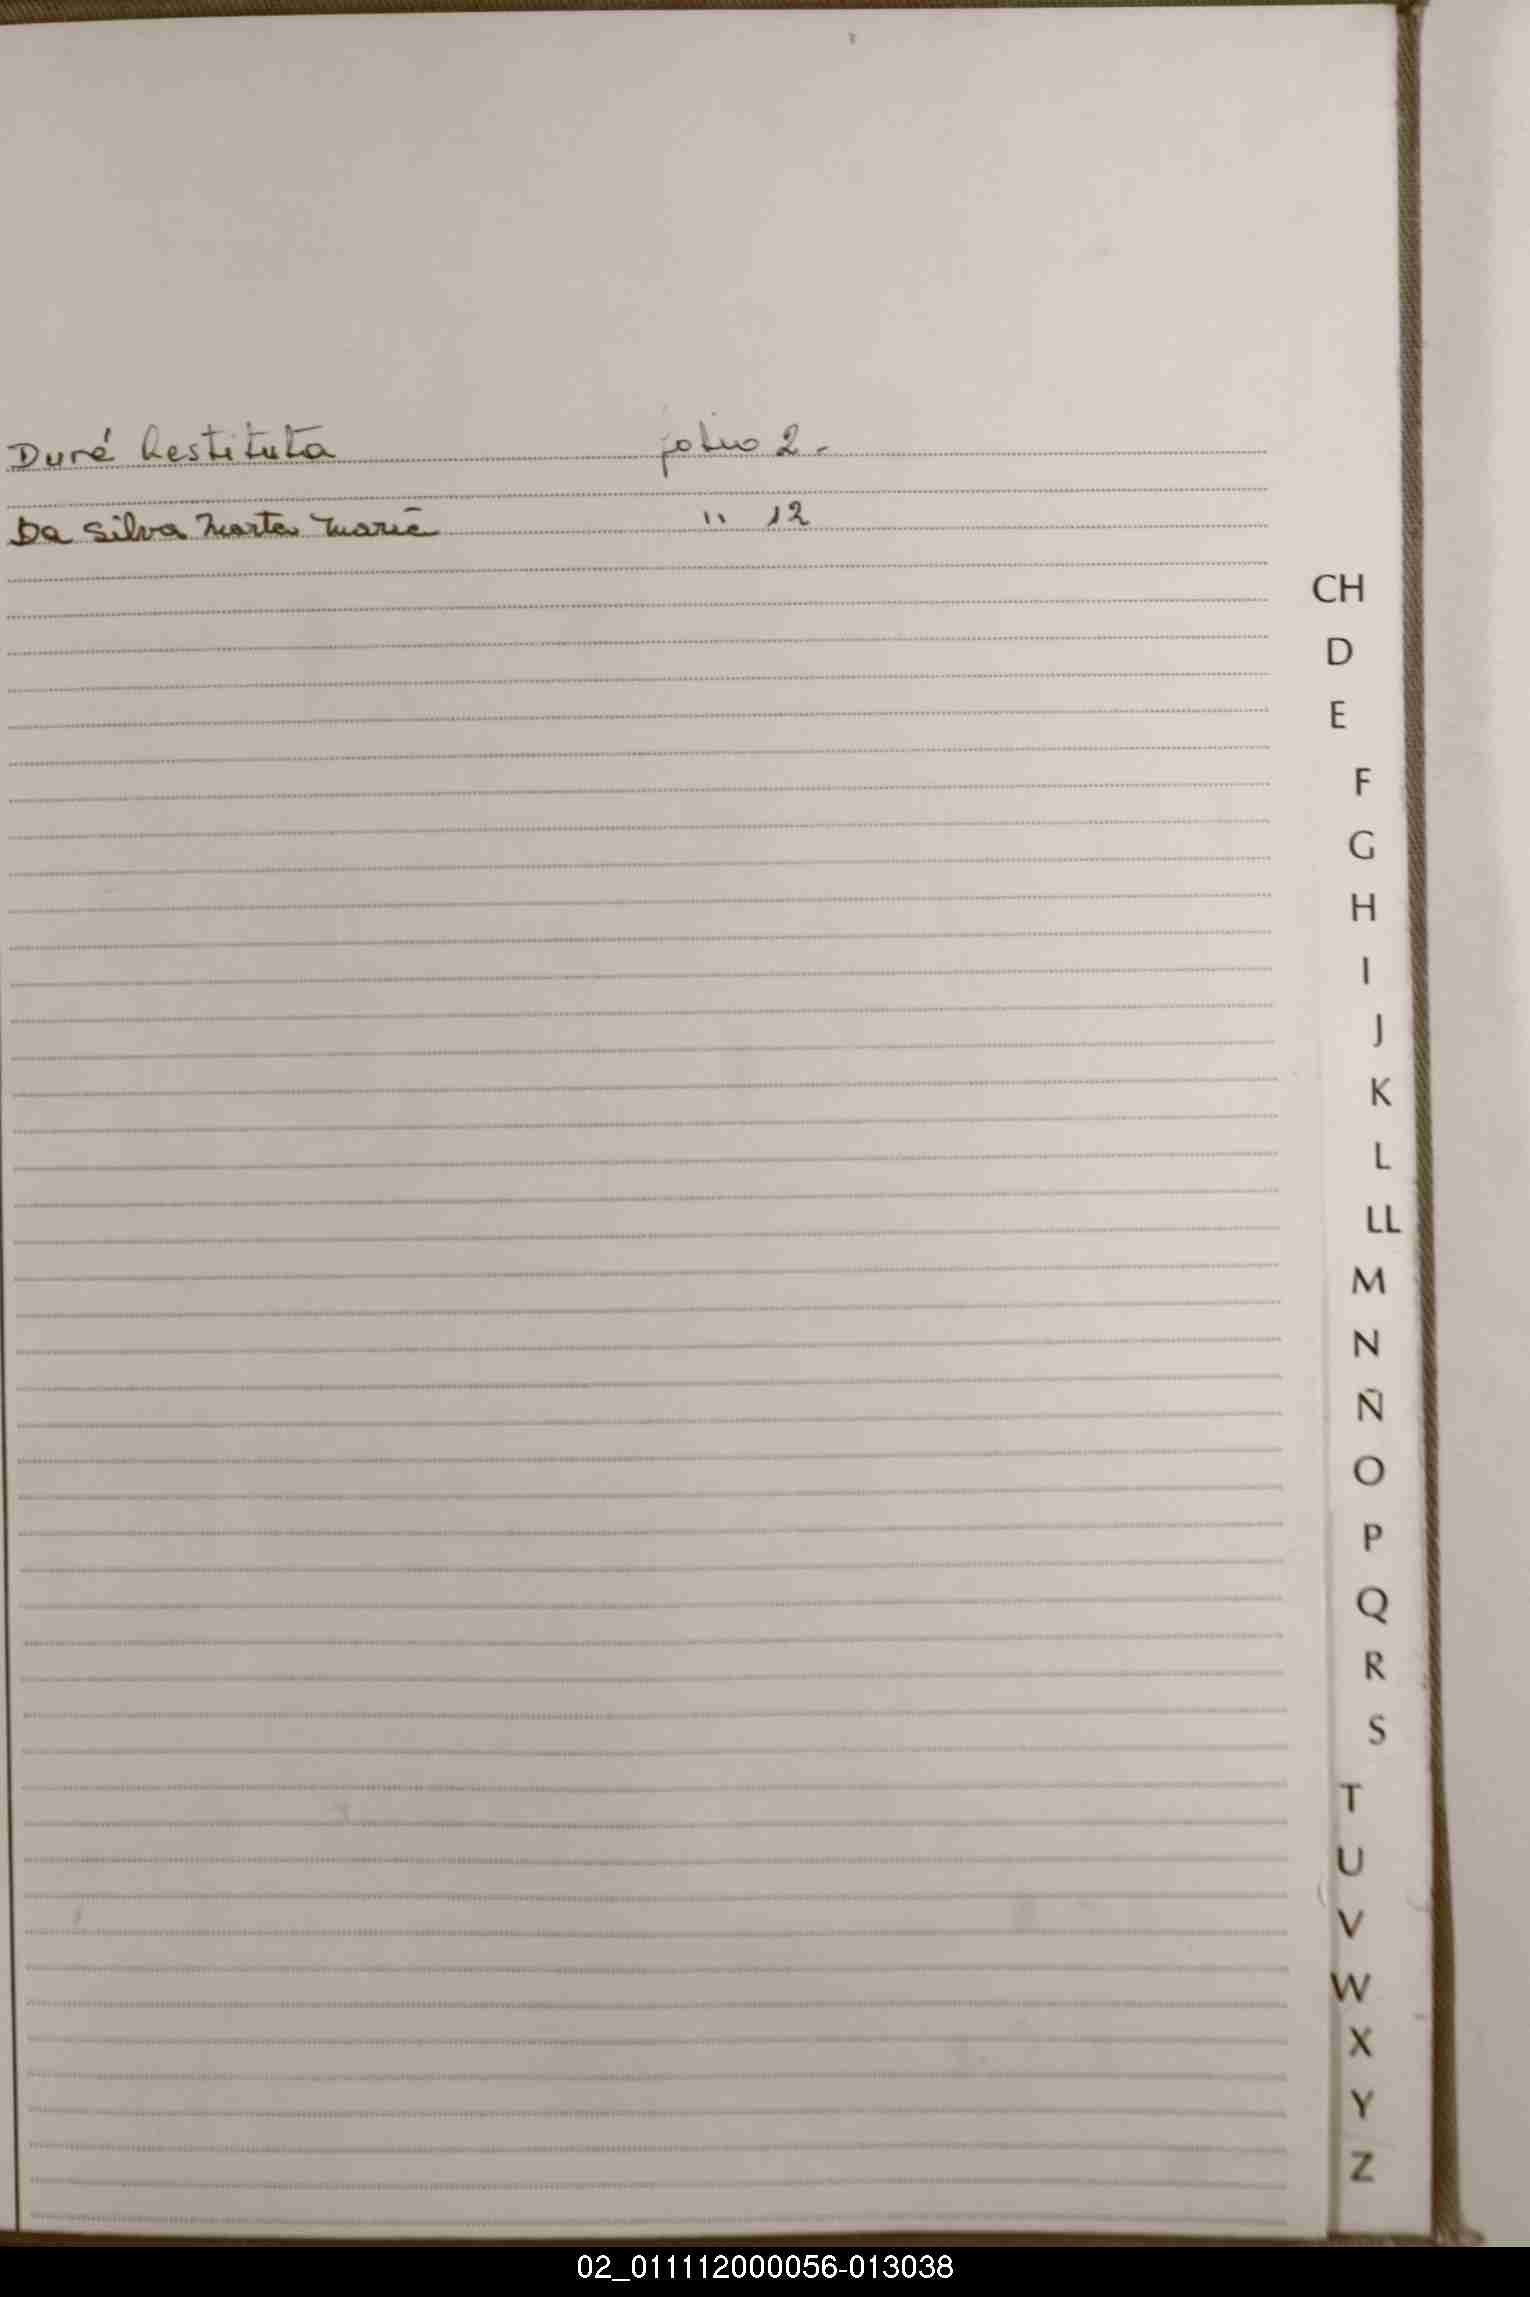 Duré Restituta folio 2.-
Da Silva Marta Marie " 12
CH
D
E
F
G
H
I
J
K
L
LL
M
N
Ñ
O
P
Q
R
S
T
U
V
W
X
Y
Z
02_011112000056-013038